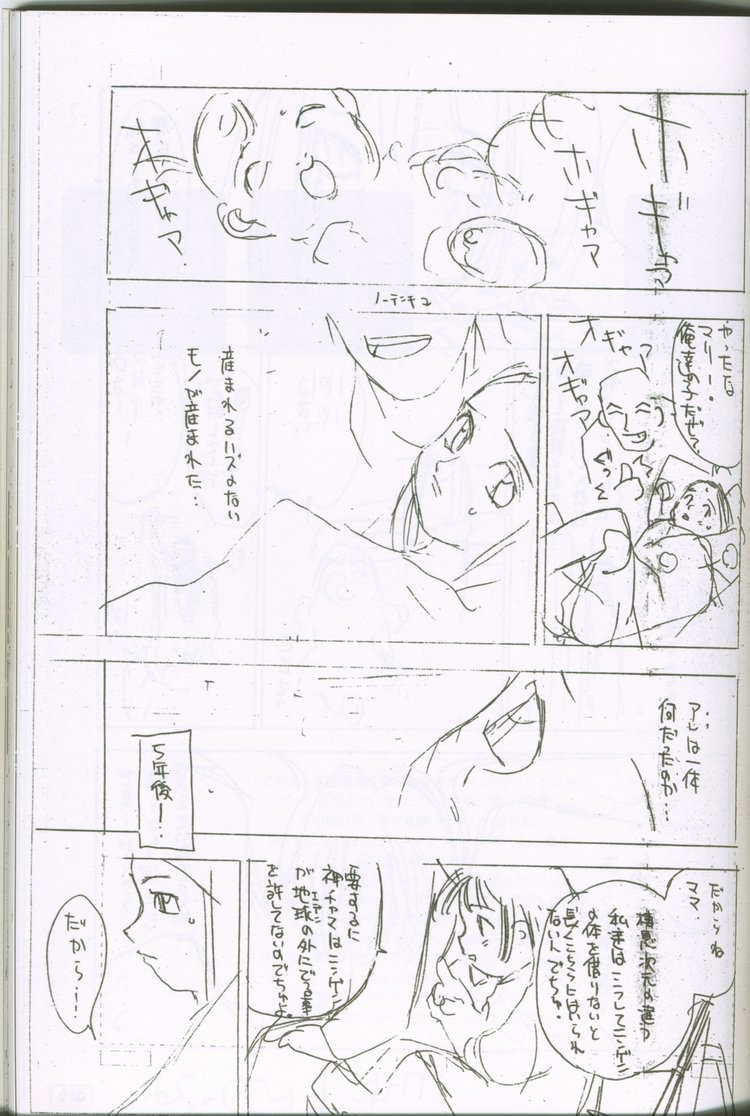 ホギャア
ホギャマ
オギャマ
やったな
マリー。
俺達の子だぜ
オギャア
オギャマ
ぐっ
ノーテンキコ
産まれるハズのない
モノが産まれた…
アレは一体
何だったのか…
5年後ー…
だからね
ママ、
棲息次元の違う
私達はこうしてニンゲン
の体を借りないと
長くこちらにはいられ
ないんでちゅ!
要するに
神チャマはニンゲン
が地球の外にでる事
エデン
を許してないのでちゅよ。
だから!!